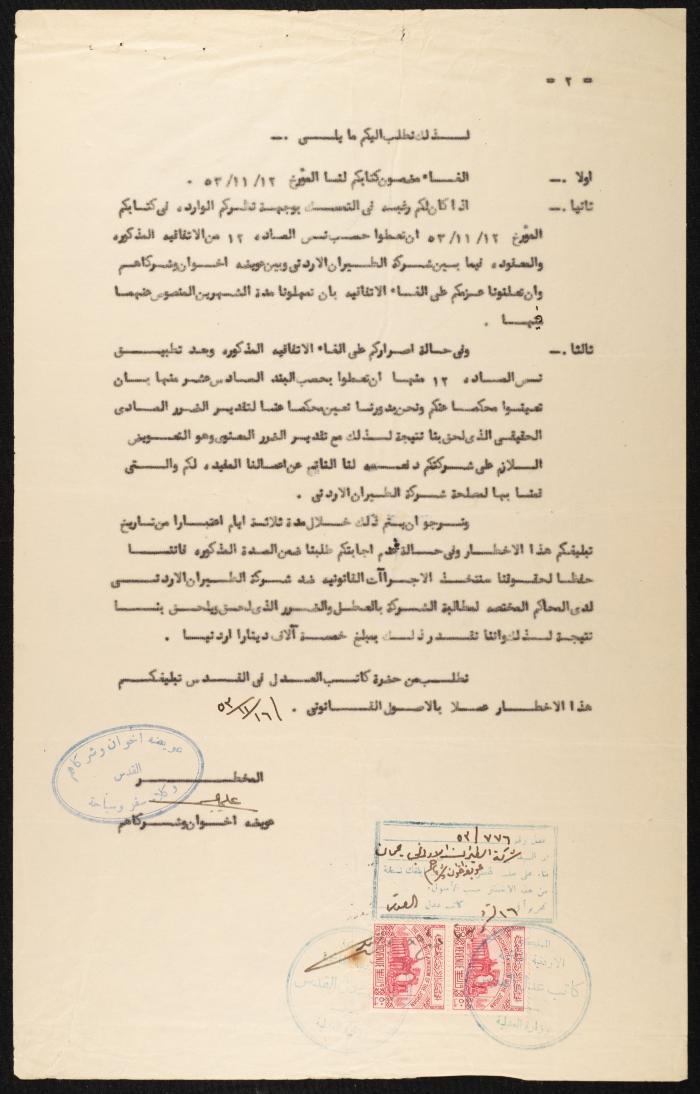 = ٢ =
لـذلك نطلب اليكم ما يلـي .—
اولا .— الغاء مضمون كتابكم لنا المؤرخ ٥٣/١١/١٢ .
ثانيا .— اذا كان لكم رغبه في التمسك بوجهة نظركم الوارده في كتابكم
المؤرخ ٥٣/١١/١٢ ان تعطوا حسب نص الماده ١٢ من الاتفاقيه المذكوره
والمعقوده فيما بين شركة الطيران الاردني وبين عويضه اخوان وشركاهم
وان تعلنونا عزمكم على الغاء الاتفاقيه بان تمهلونا مدة الشهرين المنصوص عنهما
فيها .
ثالثا .— وفي حالة اصراركم على الغاء الاتفاقيه المذكوره وبعد تطبيق
نص الماده ١٢ منها ان تعطوا بحسب البند السادس عشر منها بان
تعينوا محكما عنكم ونحن بدورنا نعين محكما عنا لتقدير الضرر المادي
الحقيقي الذي لحق بنا نتيجة لذلك مع تقدير الضرر المعنوي وهو التعويض
اللازم على شركتكم دفعه لنا الناتج عن اعمالنا المفيده لكم والتي
قمنا بها لمصلحة شركة الطيران الاردني .
ونرجو ان يتم ذلك خلال مدة ثلاثة ايام اعتبارا من تاريخ
تبليغكم هذا الاخطار وفي حالة عدم اجابتكم طلبنا ضمن المدة المذكوره فاننا
حفظا لحقوقنا سنتخذ الاجراآت القانونيه ضد شركة الطيران الاردني
لدى المحاكم المختصه لمطالبة الشركة بالعطل والضرر الذي لحق ويلحق بنا
نتيجة لذلك واننا نقدر ذلك بمبلغ خمسة آلاف دينارا اردنيا .
نطلب من حضرة كاتب العدل في القدس تبليغكم
هذا الاخطار عملا بالاصول القانوني . ٥٣/١١/١٦
عويضه اخوان وشركاهم
القدس
وكلاء سفر وسياحة
المخطر
عويضه اخوان وشركاهم
٥٣/٧٧٦
شركة الطيران الاردني بعمان
عويضه اخوان وشركاهم
كاتب عدل القدس
١٦
كاتب عدل
وزارة العدلية
القدس